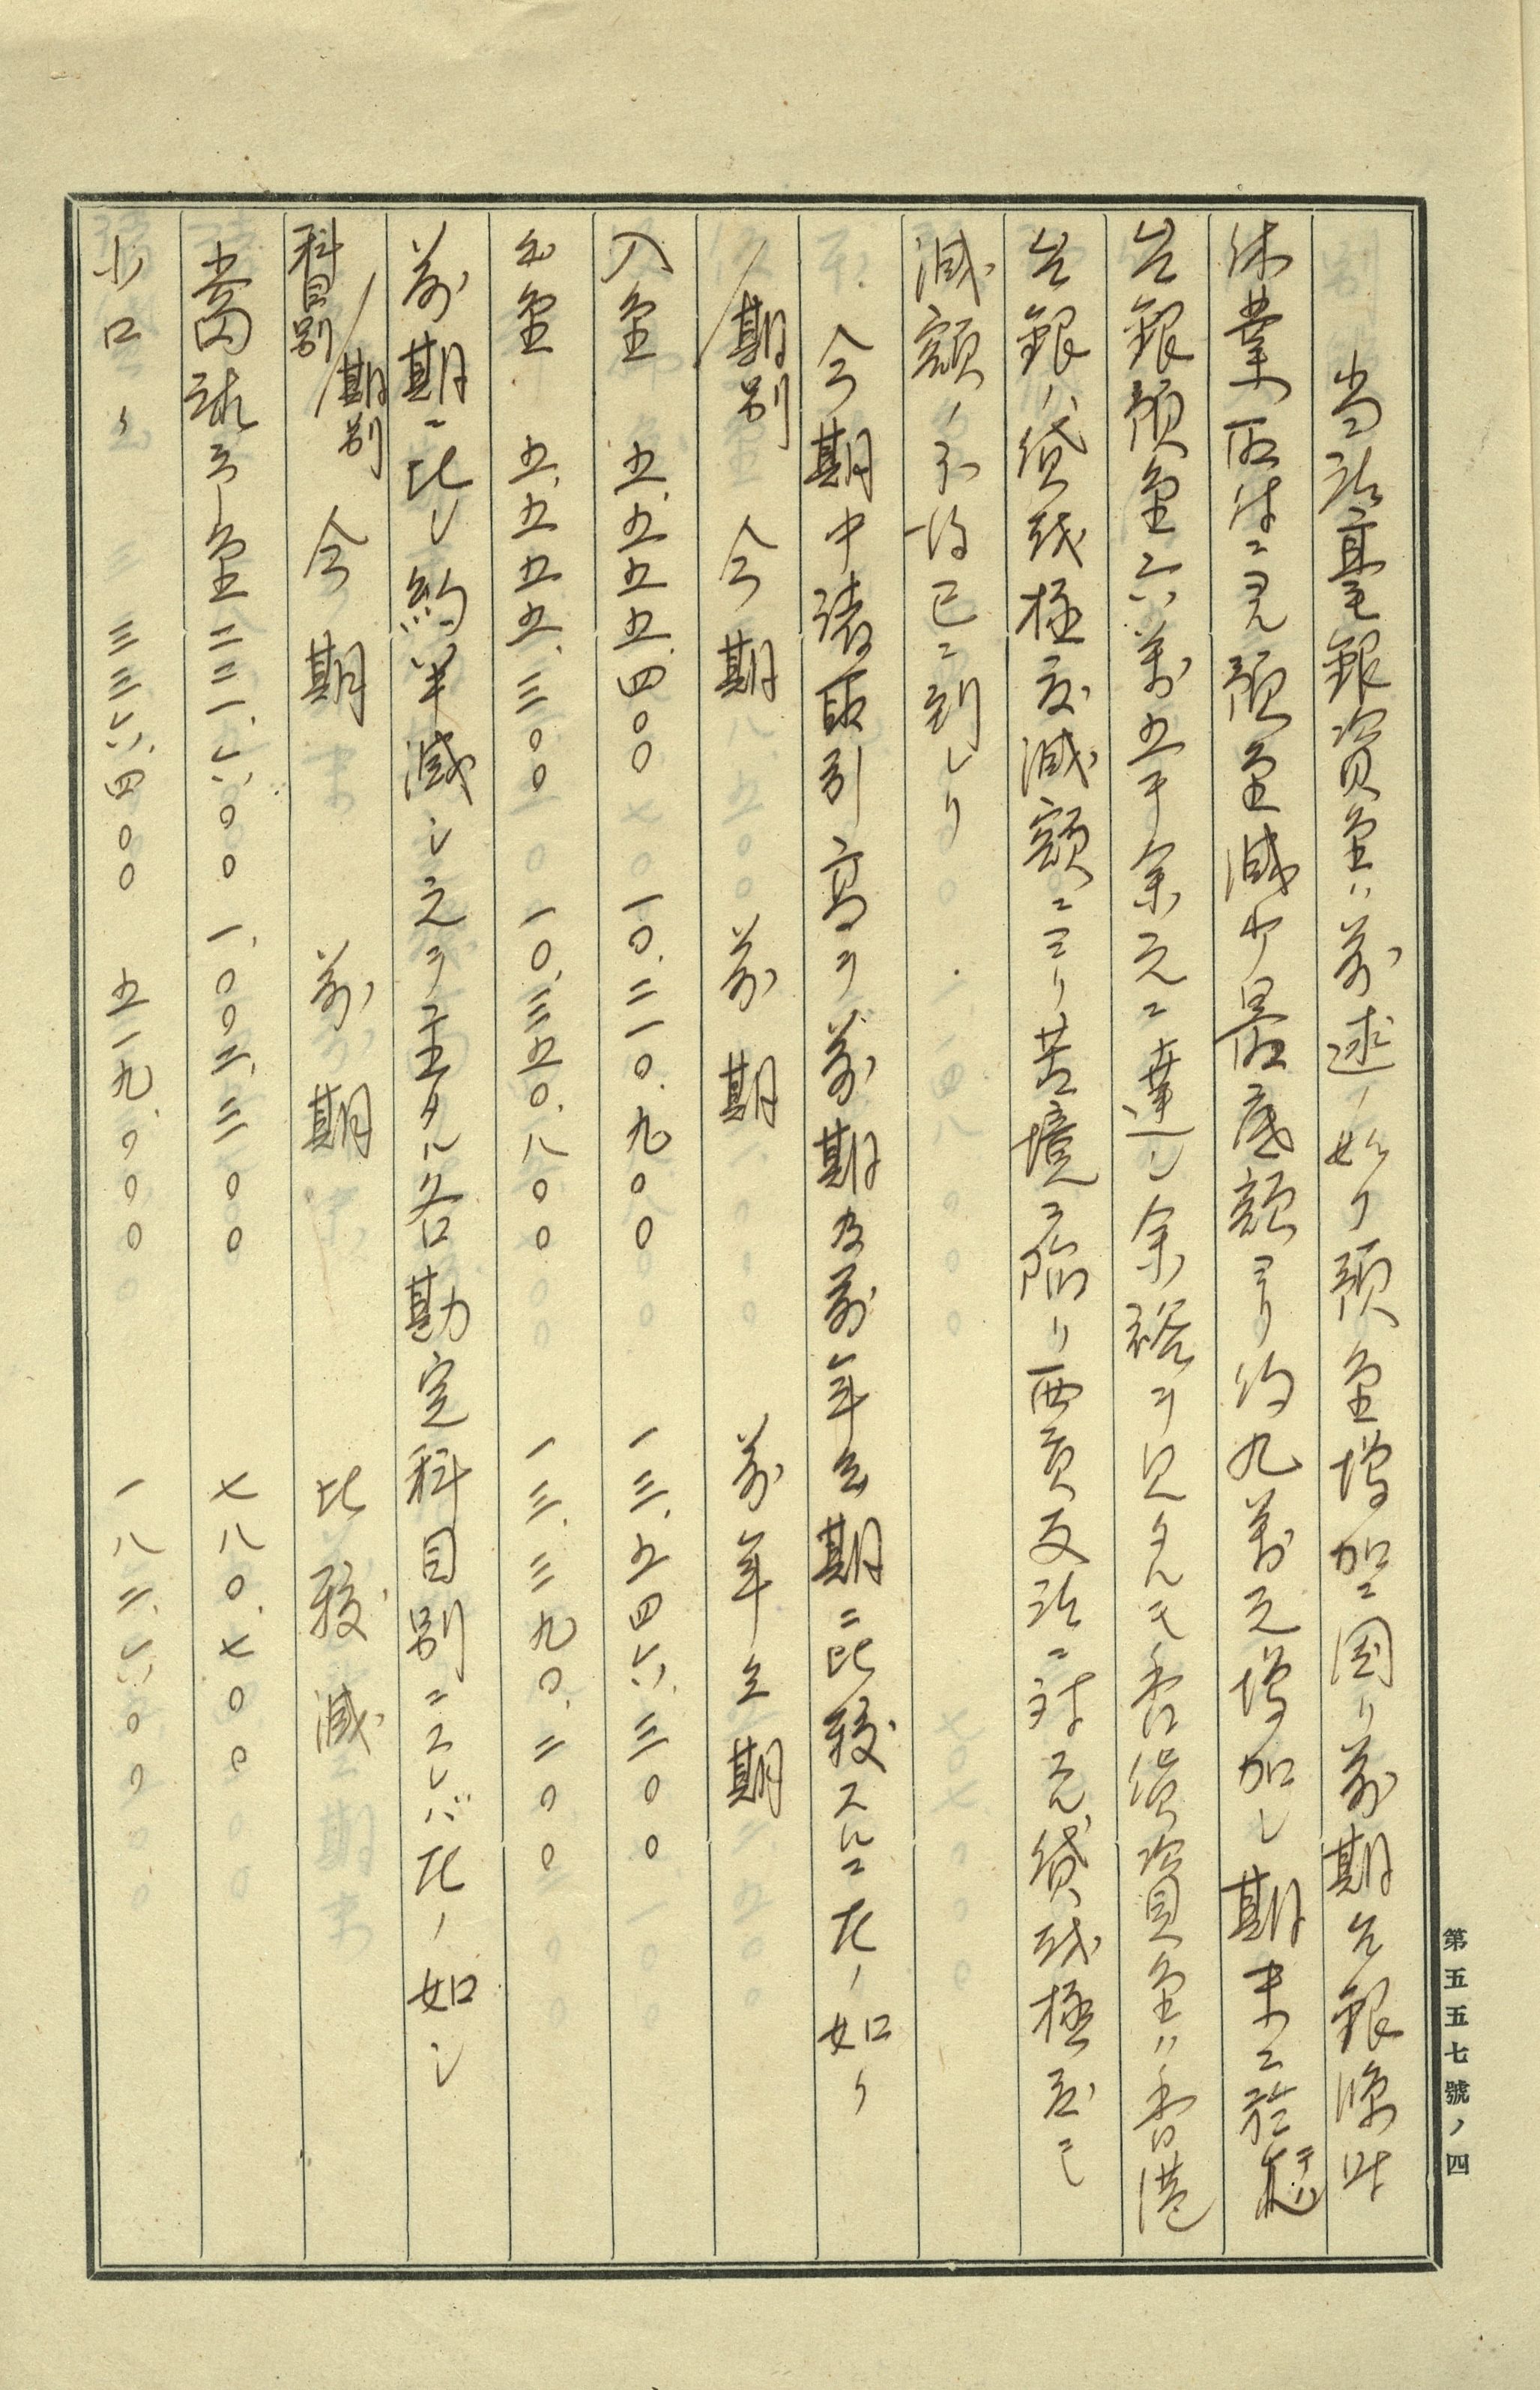 当方臺銀資金ハ前述ノ如ク預金増加ニ因リ前期台銀
休業取付ニヨル預金減少最底額ヨリ約九萬元増加シ期末ニ於テハ
台銀預金六萬五千余元ニ達シ余裕ヲ見タルモ香償資金ハ香港
台銀ハ貸越極度減額ニヨリ苦境ニ陥リ両貢支店ニ対スル貸越極度モ
減額ノ不得已ニ到レリ
今期中諸取引高ヲ前期及前年仝期ニ比較スルニ左ノ如ク
期別 今期 前期 前年仝期
入金 五、五五五、四〇〇 一〇、二一〇、九〇〇 一三、五四六、三〇〇
出金 五、五五五、三〇〇 一〇、三五〇、八〇〇 一三、三九〇、二〇〇
前期ニ比シ約半減シ之ヲ主タル各勘定科目別ニスレバ左ノ如シ
科目別 期別 今期 前期 比較減
当座預金 二二一、六〇〇 一、〇〇二、三〇〇 七八〇、七〇〇
小口〃 三三六、四〇〇 五一九、〇〇〇 一八二、六〇〇
第五五七號ノ四